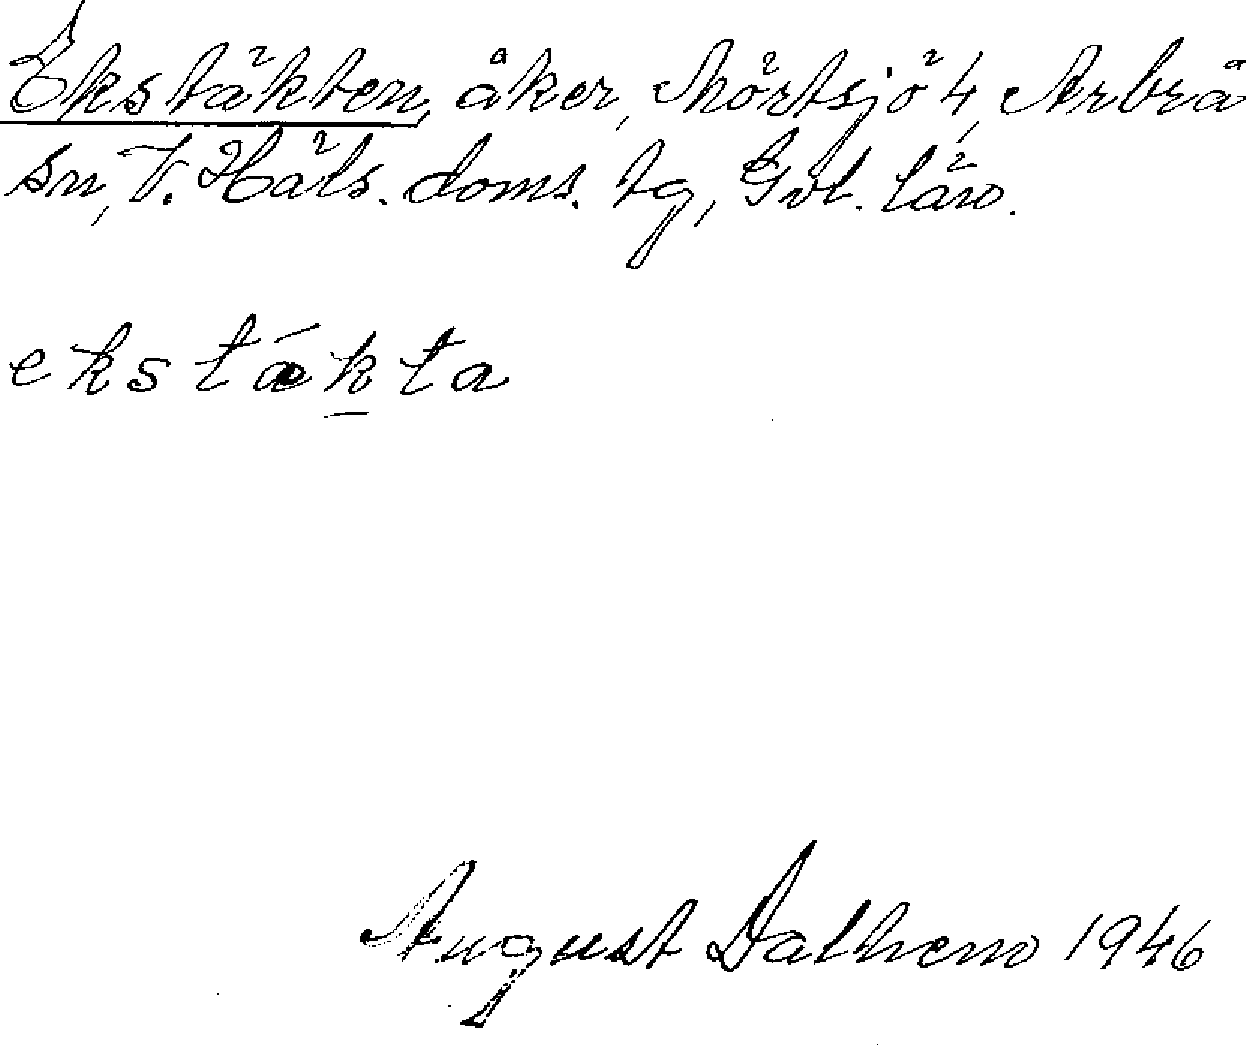 Ekstäkten, åker, Mörtsjö 4, Arbrå
sn, V. Häls. doms. tg, Gvl. län.
ekstækta
August Dalhem 1946